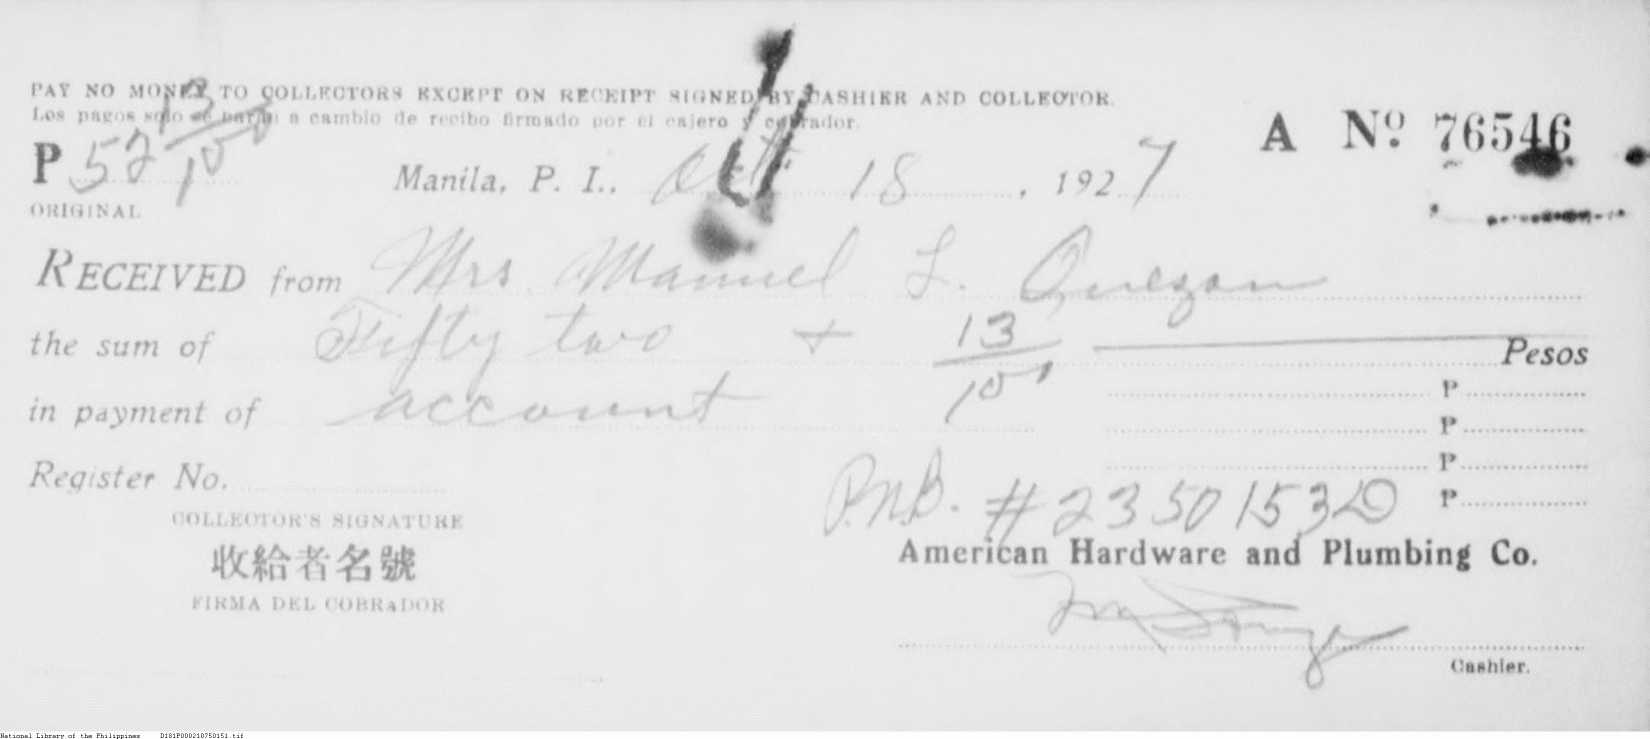 PAY NO MONEY TO COLLECTORS EXCEPT ON RECEIPT SIGNED BY CASHIER AND COLLECTOR.
Los pagos solo se harán a cambio de recibo firmado por el cajero y cobrador.
A Nº 76546
P 52 13/100 Manila, P. I., Oct 18, 1927
ORIGINAL
RECEIVED from Mrs. Manuel L. Quezon
the sum of Fifty two + 13/100 Pesos
in payment of account P
P
P
Register No. P
P.N.B. # 235015
COLLECTOR'S SIGNATURE
收給者名號
FIRMA DEL COBRADOR
American Hardware and Plumbing Co.
Cashier.
National Library of the Philippines D181P000210750151.tif